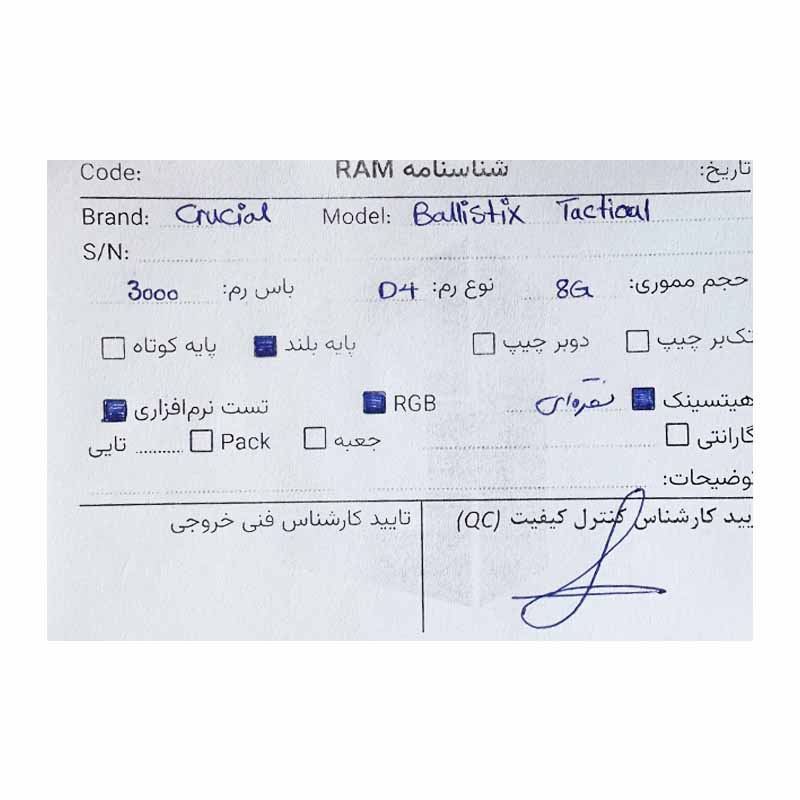 Code: شناسنامه RAM تاریخ:
Brand: Crucial Model: Ballistix Tactical
S/N:
حجم مموری: 8G نوع رم: D4 باس رم: 3000
تک‌بر چیپ دوبر چیپ پایه بلند پایه کوتاه
هیتسینک نقره‌ای RGB تست نرم‌افزاری
گارانتی جعبه Pack ........ تایی
توضیحات:
یید کارشناس کنترل کیفیت (QC) تایید کارشناس فنی خروجی